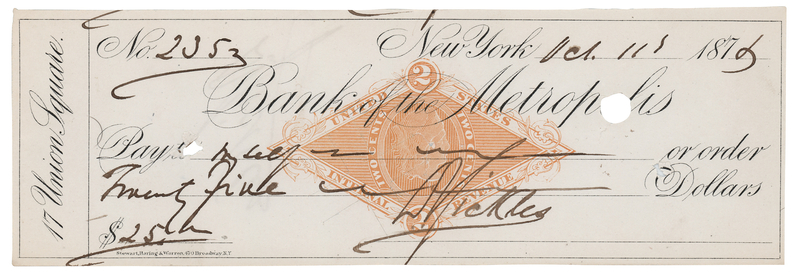 17 Union Square.
No. 2353 New York Oct. 11 187
Bank of the Metropolis
Pay to myself or order
Twenty Five Dollars
D Sickles
$25
Stewart, Warren & Co.
2
UNITED STATES
TWO CENTS TWO CENTS
INTERNAL REVENUE
2